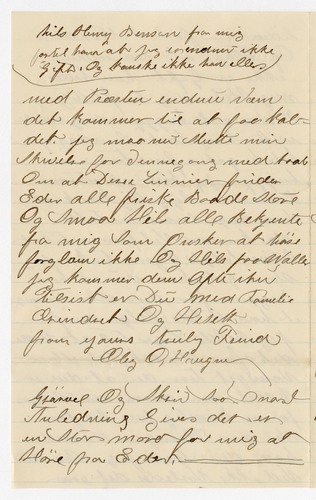 Hils Henry Benson fra mig
fortel ham at jeg er endnu ikke
Gift. Og kanske ikke han eller.
med Præsten endnu vem
det kammer til at faa kal-
det. jeg maa nu Slutte min
Skrivelse for denne gang med haab
Om at Disse Linnier finder
Eder alle friske Baade Store
Og Smaa Hils alle Bekjente
fra mig Som Ønsker at høre
forglam ikke Og Hils
jeg kammer dem Ofte ihu
tilsist er Du med Familie
Og Hilset
from yours truly Frind
Oley O Haugen
Og Skriv Saa Snart
Anledning Gives det er
en Stor moro for mig at
Høre fra Eder.